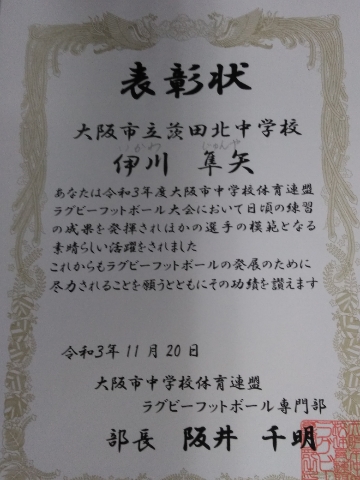 表彰状
大阪市立茨田北中学校
いかわ じゅんや
伊川 隼矢
あなたは令和3年度大阪市中学校体育連盟
ラグビーフットボール大会において日頃の練習
の成果を発揮されほかの選手の模範となる
素晴らしい活躍をされました
これからもラグビーフットボールの発展のために
尽力されることを願うとともにその功績を讃えます
令和3年11月20日
大阪市中学校体育連盟
ラグビーフットボール専門部
部長 阪井 千明